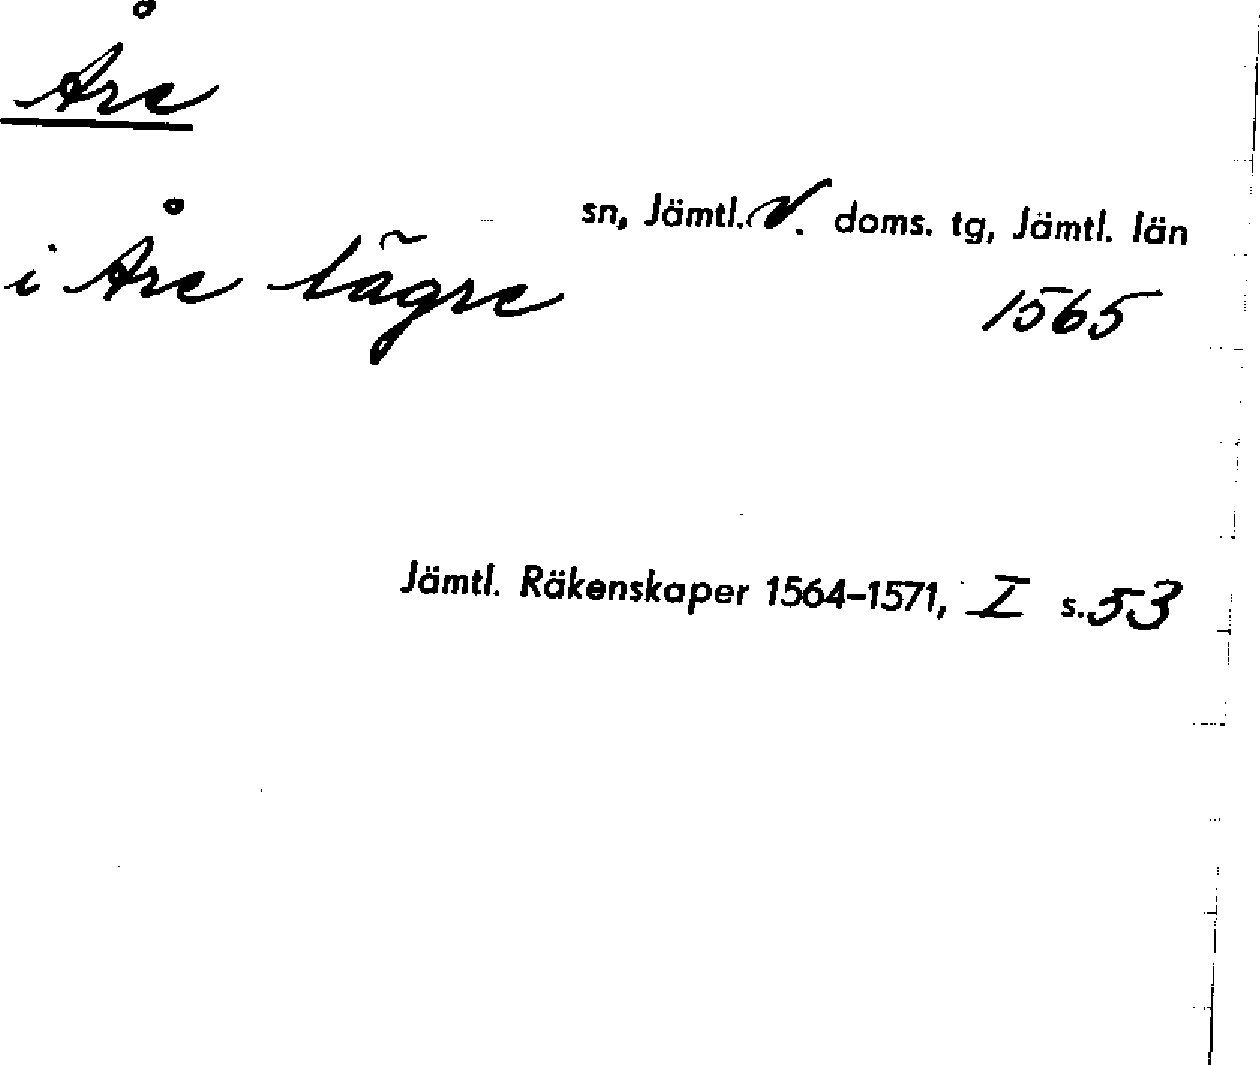 Åre
sn, Jämtl. V. doms. tg, Jämtl. län
i Åre lägre
1565
Jämtl. Räkenskaper 1564-1571, I s. 53